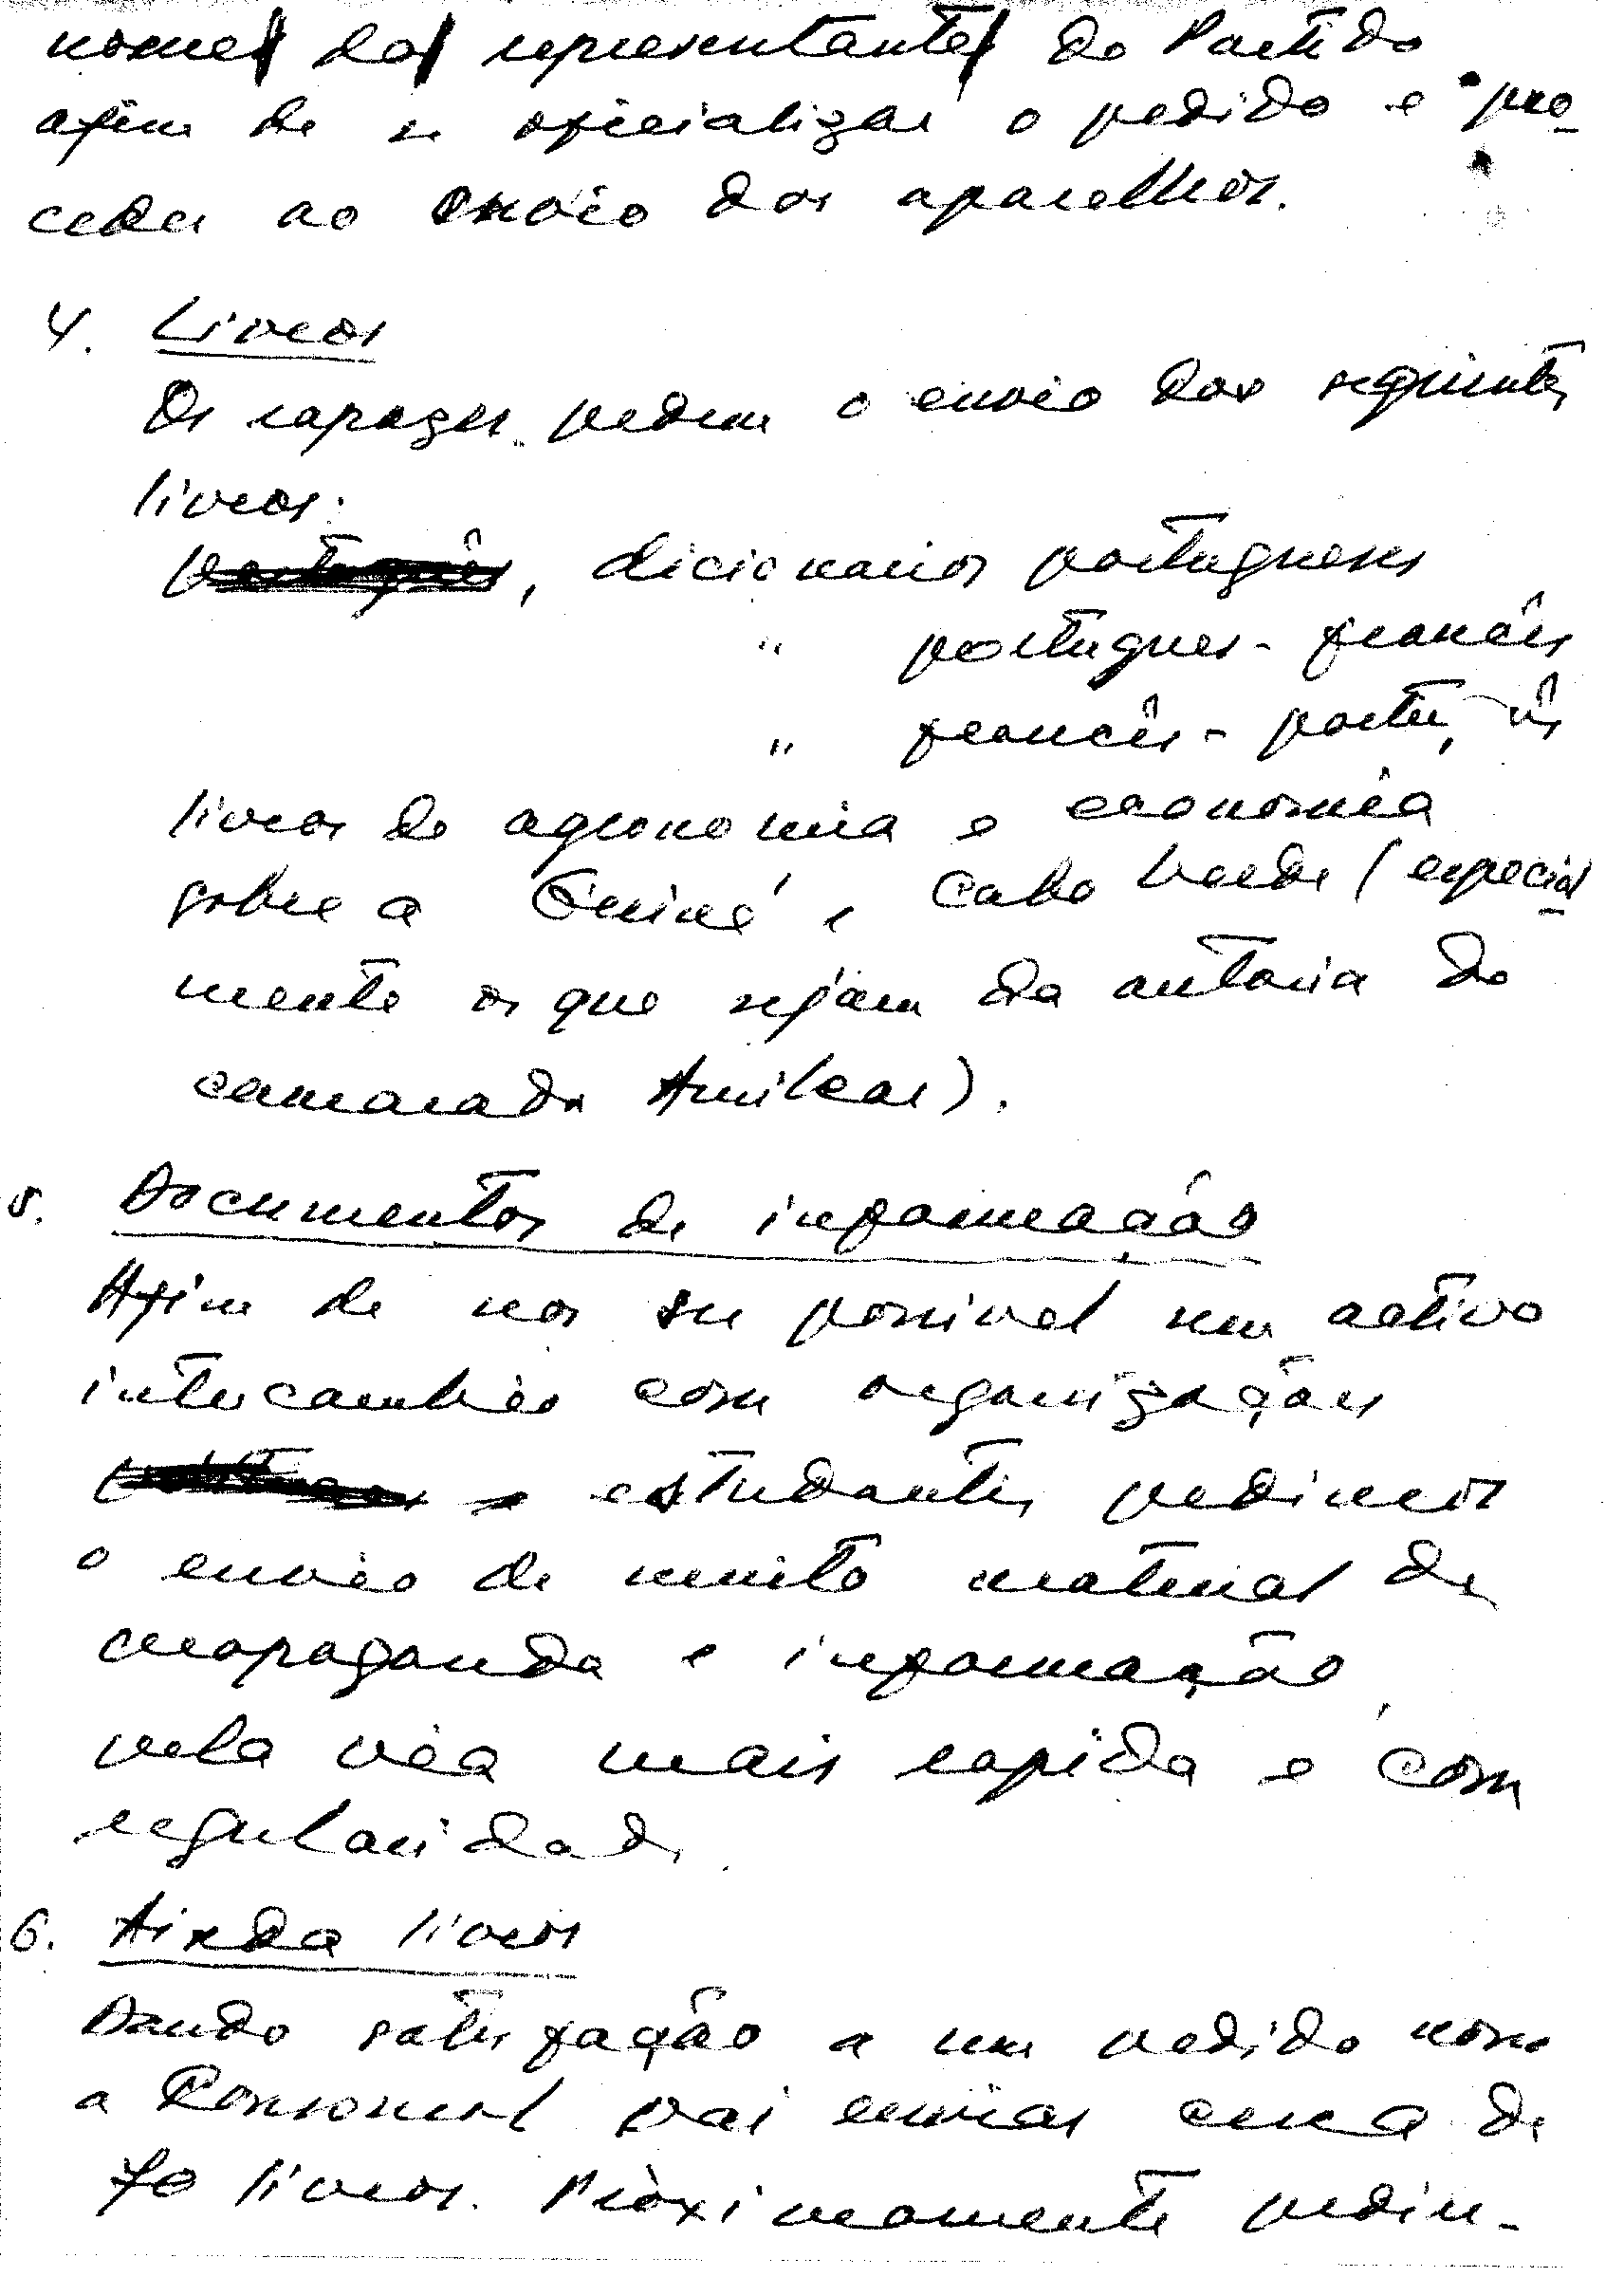 nome do representante do Partido
afim de se oficializar o pedido e pro-
ceder ao envio dos aparelhos.
4. Livros
Os rapazes pedem o envio dos seguintes
livros:
português, dicionarios portugueses
" portugues - francês
" francês - português
livros de agronomia e economia
sobre a Guiné e Cabo Verde (especial-
mente os que sejam da autoria do
camarada Amilcar).
5. Documentos de informação
Afim de nos ser possivel um activo
intercambio com organizações
estudantis, pedimos
o envio de muito material de
propaganda e informação
pela via mais rapida e com
regularidade.
6. Ainda livros
Dando satisfação a um pedido nosso
a Komsomol vai enviar cerca de
70 livros. Pròximamente pedire-